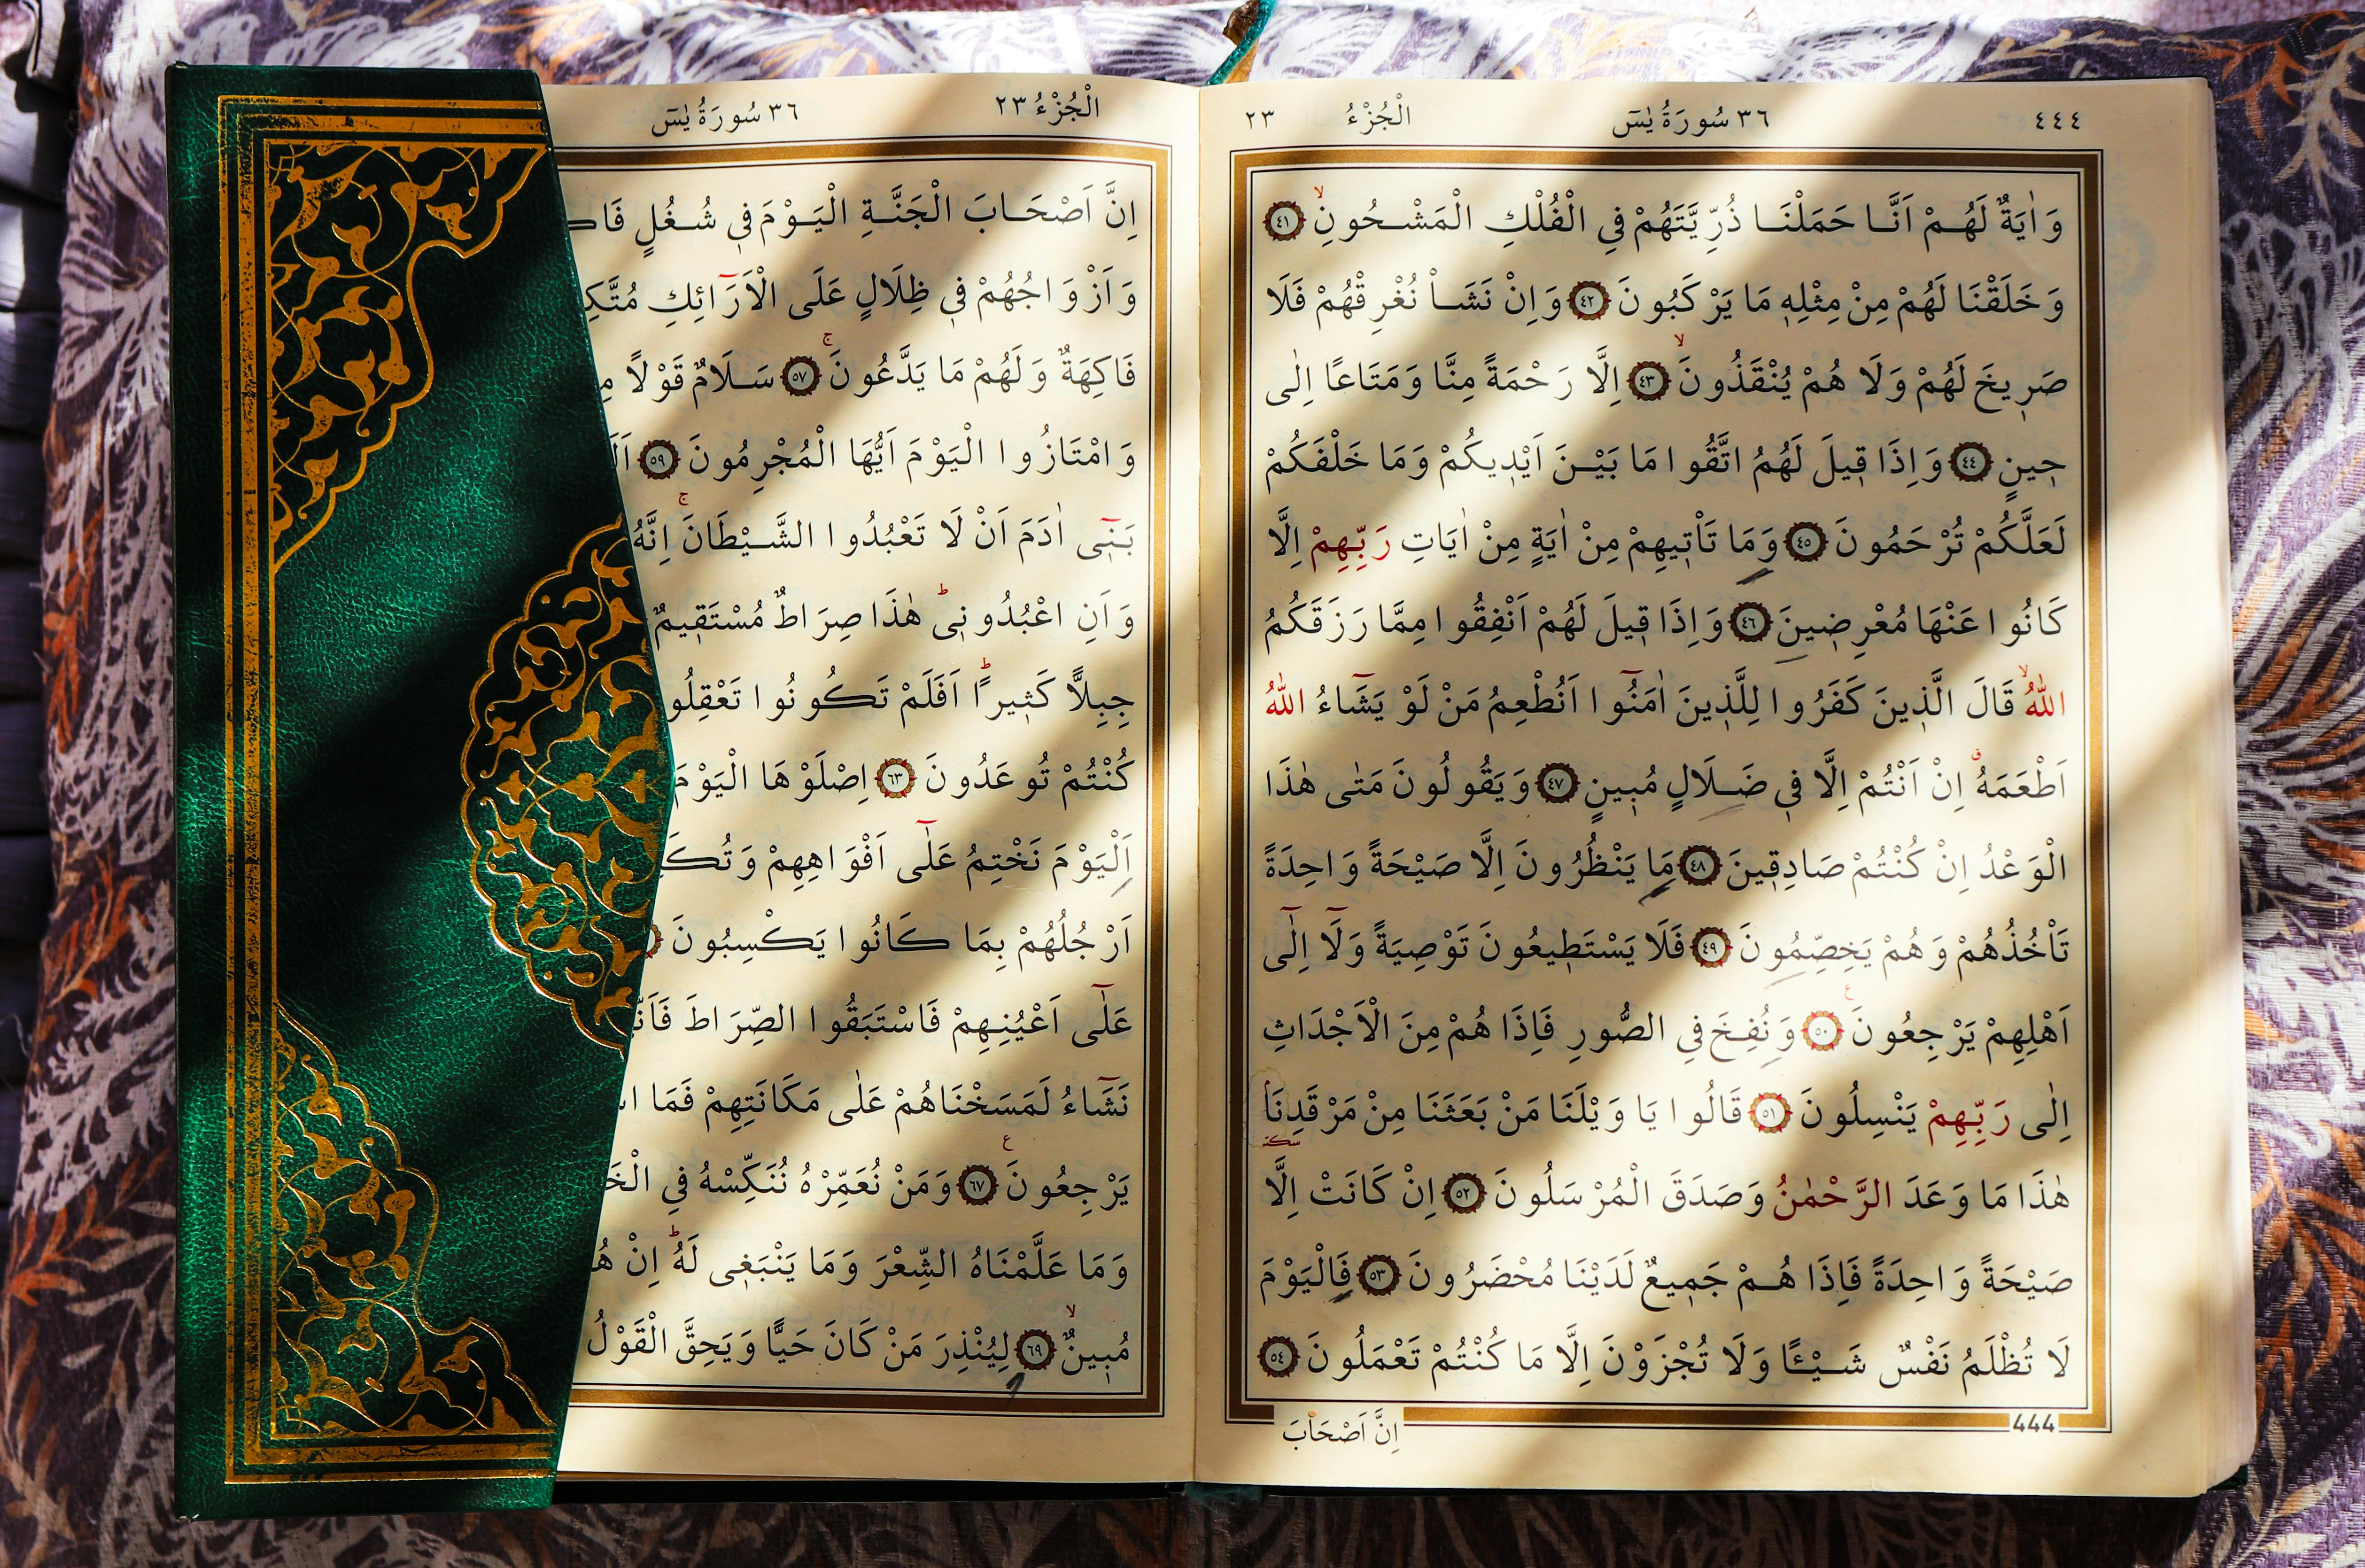 ٤٤٤ ٣٦ سُورَةُ يٰسٓ اَلْجُزْءُ ٢٣
وَاٰيَةٌ لَهُمْ اَنَّا حَمَلْنَا ذُرِّيَّتَهُمْ فِي الْفُلْكِ الْمَشْحُونِۙ ﴿٤١﴾
وَخَلَقْنَا لَهُمْ مِنْ مِثْلِه۪ مَا يَرْكَبُونَ ﴿٤٢﴾ وَاِنْ نَشَأْ نُغْرِقْهُمْ فَلَا
صَر۪يخَ لَهُمْ وَلَا هُمْ يُنْقَذُونَۙ ﴿٤٣﴾ اِلَّا رَحْمَةً مِنَّا وَمَتَاعًا اِلٰى
ح۪ينٍ ﴿٤٤﴾ وَاِذَا ق۪يلَ لَهُمُ اتَّقُوا مَا بَيْنَ اَيْد۪يكُمْ وَمَا خَلْفَكُمْ
لَعَلَّكُمْ تُرْحَمُونَ ﴿٤٥﴾ وَمَا تَأْت۪يهِمْ مِنْ اٰيَةٍ مِنْ اٰيَاتِ رَبِّهِمْ اِلَّا
كَانُوا عَنْهَا مُعْرِض۪ينَ ﴿٤٦﴾ وَاِذَا ق۪يلَ لَهُمْ اَنْفِقُوا مِمَّا رَزَقَكُمُ
اللّٰهُۙ قَالَ الَّذ۪ينَ كَفَرُوا لِلَّذ۪ينَ اٰمَنُٓوا اَنُطْعِمُ مَنْ لَوْ يَشَٓاءُ اللّٰهُ
اَطْعَمَهُۗ اِنْ اَنْتُمْ اِلَّا ف۪ي ضَلَالٍ مُب۪ينٍ ﴿٤٧﴾ وَيَقُولُونَ مَتٰى هٰذَا
الْوَعْدُ اِنْ كُنْتُمْ صَادِق۪ينَ ﴿٤٨﴾ مَا يَنْظُرُونَ اِلَّا صَيْحَةً وَاحِدَةً
تَأْخُذُهُمْ وَهُمْ يَخِصِّمُونَ ﴿٤٩﴾ فَلَا يَسْتَط۪يعُونَ تَوْصِيَةً وَلَٓا اِلٰٓى
اَهْلِهِمْ يَرْجِعُونَ ﴿٥٠﴾ وَنُفِخَ فِي الصُّورِ فَاِذَا هُمْ مِنَ الْاَجْدَاثِ
اِلٰى رَبِّهِمْ يَنْسِلُونَ ﴿٥١﴾ قَالُوا يَا وَيْلَنَا مَنْ بَعَثَنَا مِنْ مَرْقَدِنَا سكتة
هٰذَا مَا وَعَدَ الرَّحْمٰنُ وَصَدَقَ الْمُرْسَلُونَ ﴿٥٢﴾ اِنْ كَانَتْ اِلَّا
صَيْحَةً وَاحِدَةً فَاِذَا هُمْ جَم۪يعٌ لَدَيْنَا مُحْضَرُونَ ﴿٥٣﴾ فَالْيَوْمَ
لَا تُظْلَمُ نَفْسٌ شَيْـًٔا وَلَا تُجْزَوْنَ اِلَّا مَا كُنْتُمْ تَعْمَلُونَ ﴿٥٤﴾
444
اِنَّ اَصْحَابَ
اَلْجُزْءُ ٢٣ ٣٦ سُورَةُ يٰسٓ
اِنَّ اَصْحَابَ الْجَنَّةِ الْيَوْمَ ف۪ي شُغُلٍ
وَاَزْوَاجُهُمْ ف۪ي ظِلَالٍ عَلَى الْاَرَٓائِكِ
فَاكِهَةٌ وَلَهُمْ مَا يَدَّعُونَۚ ﴿٥٧﴾ سَلَامٌ قَوْلًا
وَامْتَازُوا الْيَوْمَ اَيُّهَا الْمُجْرِمُونَ ﴿٥٩﴾
بَن۪ٓي اٰدَمَ اَنْ لَا تَعْبُدُوا الشَّيْطَانَۚ اِنَّهُ
وَاَنِ اعْبُدُون۪يۜ هٰذَا صِرَاطٌ مُسْتَق۪يمٌ
جِبِلًّا كَث۪يرًاۜ اَفَلَمْ تَكُونُوا
كُنْتُمْ تُوعَدُونَ ﴿٦٣﴾ اِصْلَوْهَا الْيَوْمَ
اَلْيَوْمَ نَخْتِمُ عَلٰٓى اَفْوَاهِهِمْ
اَرْجُلُهُمْ بِمَا كَانُوا يَكْسِبُونَ
عَلٰٓى اَعْيُنِهِمْ فَاسْتَبَقُوا الصِّرَاطَ
نَشَٓاءُ لَمَسَخْنَاهُمْ عَلٰى مَكَانَتِهِمْ فَمَا
يَرْجِعُونَ ﴿٦٧﴾ وَمَنْ نُعَمِّرْهُ نُنَكِّسْهُ فِي
وَمَا عَلَّمْنَاهُ الشِّعْرَ وَمَا يَنْبَغ۪ي لَهُۜ اِنْ
مُب۪ينٌۙ ﴿٦٩﴾ لِيُنْذِرَ مَنْ كَانَ حَيًّا وَيَحِقَّ الْقَوْلُ